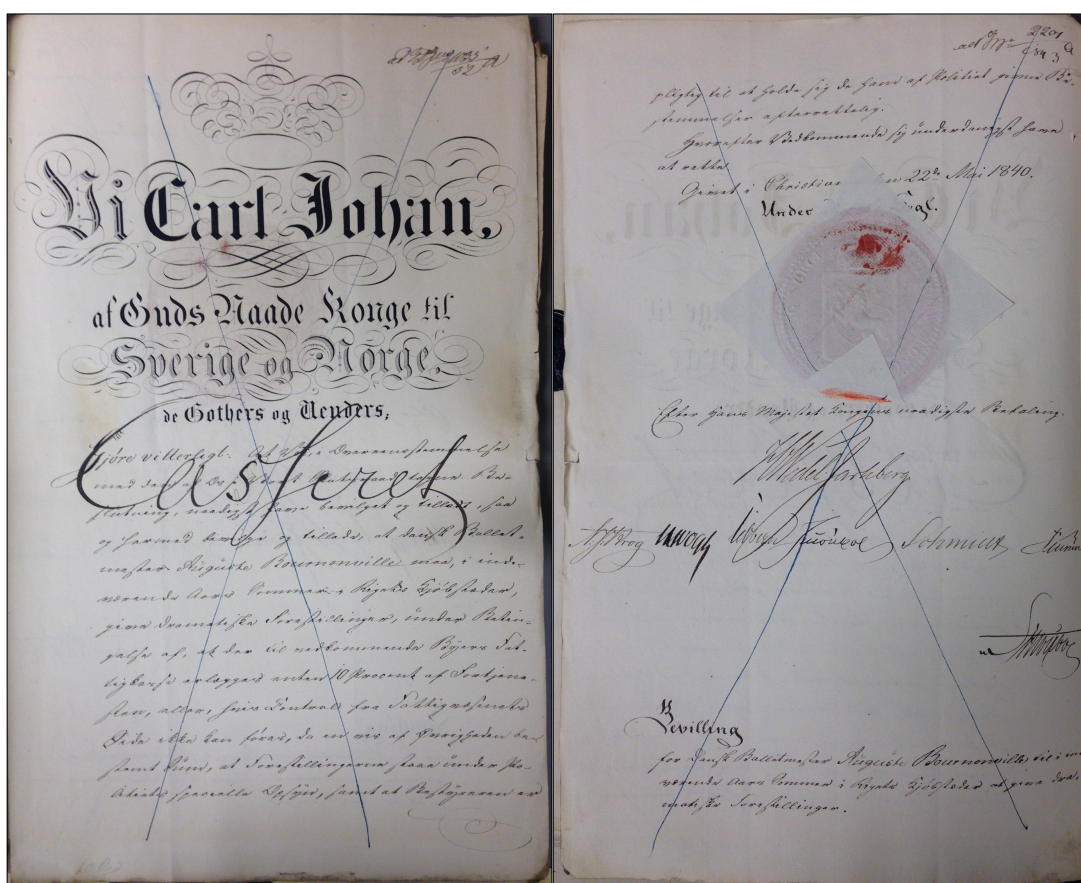 Vi Carl Johan,
af Guds Naade Konge til
Sverige og Norge,
de Gothers og Venders,
Gjøre vitterligt: At Vi, i Overeensstemmelse
med den af Os
slutning, naadigst have bevilget og tilladt, saa
og hermed bevilge og tillade, at dansk Ballet-
mester Auguste Bournonville maa, i inde-
værende Aars Sommer i Rigets Kjøbstæder,
give dramatiske Forestillinger, under Betin-
gelse af, at der til vedkommende Byers Fat-
tigkasse erlægges enten 10 Procent af Fortjene-
sten, eller, hvis Control fra Fattigvæsenets
Side ikke kan føres, da en vis af Øvrigheden be-
stemt Sum, at Forestillingerne staae under Po-
litiets specielle Opsyn, samt at Bestyreren er
Casseret
pligtig til at holde sig de ham af Politiet givne Be-
stemmelser efterrettelig.
Hvorefter Vedkommende sig underdanigst have
at rette.
Givet i Christian den 22de Mai 1840.
Under gl.
Efter Hans Majestæt Kongens naadigste Befaling.
Wedel Jarlsberg
Krog Vogt Schmidt
Bevilling
for dansk Balletmester Auguste Bournonville til i inde-
værende Aars Sommer i Rigets Kjøbstæder at give dra-
matiske Forestillinger.